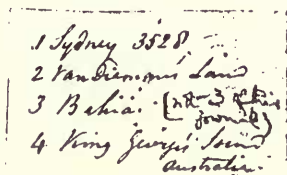 1 Sydney 3528
2 Van Diemons' Land
3 Bahia. (not 3 of this
journal)
4 King George's Sound
Australia.